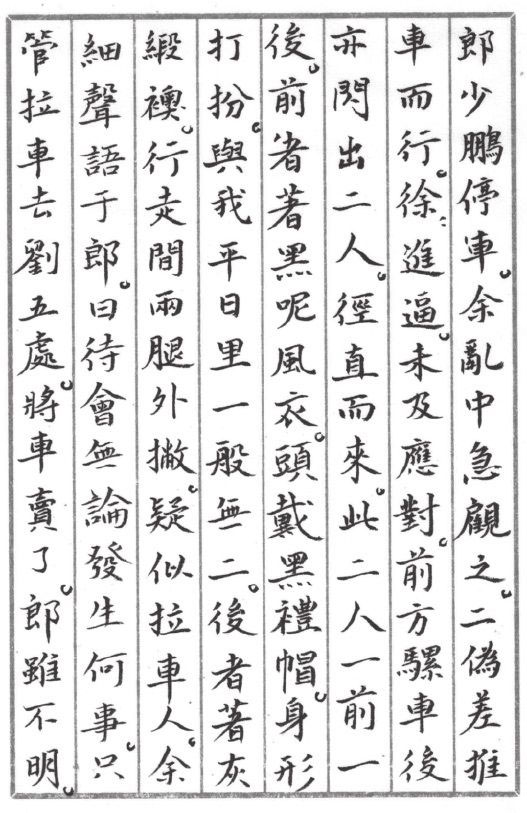 郎少鵬停車。余亂中急顧之。二偽差推
車而行。徐:進逼。未及應對。前方騾車後
亦閃出二人。徑直而來。此二人一前一
後。前者著黑呢風衣。頭戴黑禮帽。身形
打扮。與我平日里一般無二。後者著灰
緞襖。行走間兩腿外撇。疑似拉車人。余
細聲語于郎。曰待會無論發生何事。只
管拉車去劉五處。將車賣了。郎雖不明。